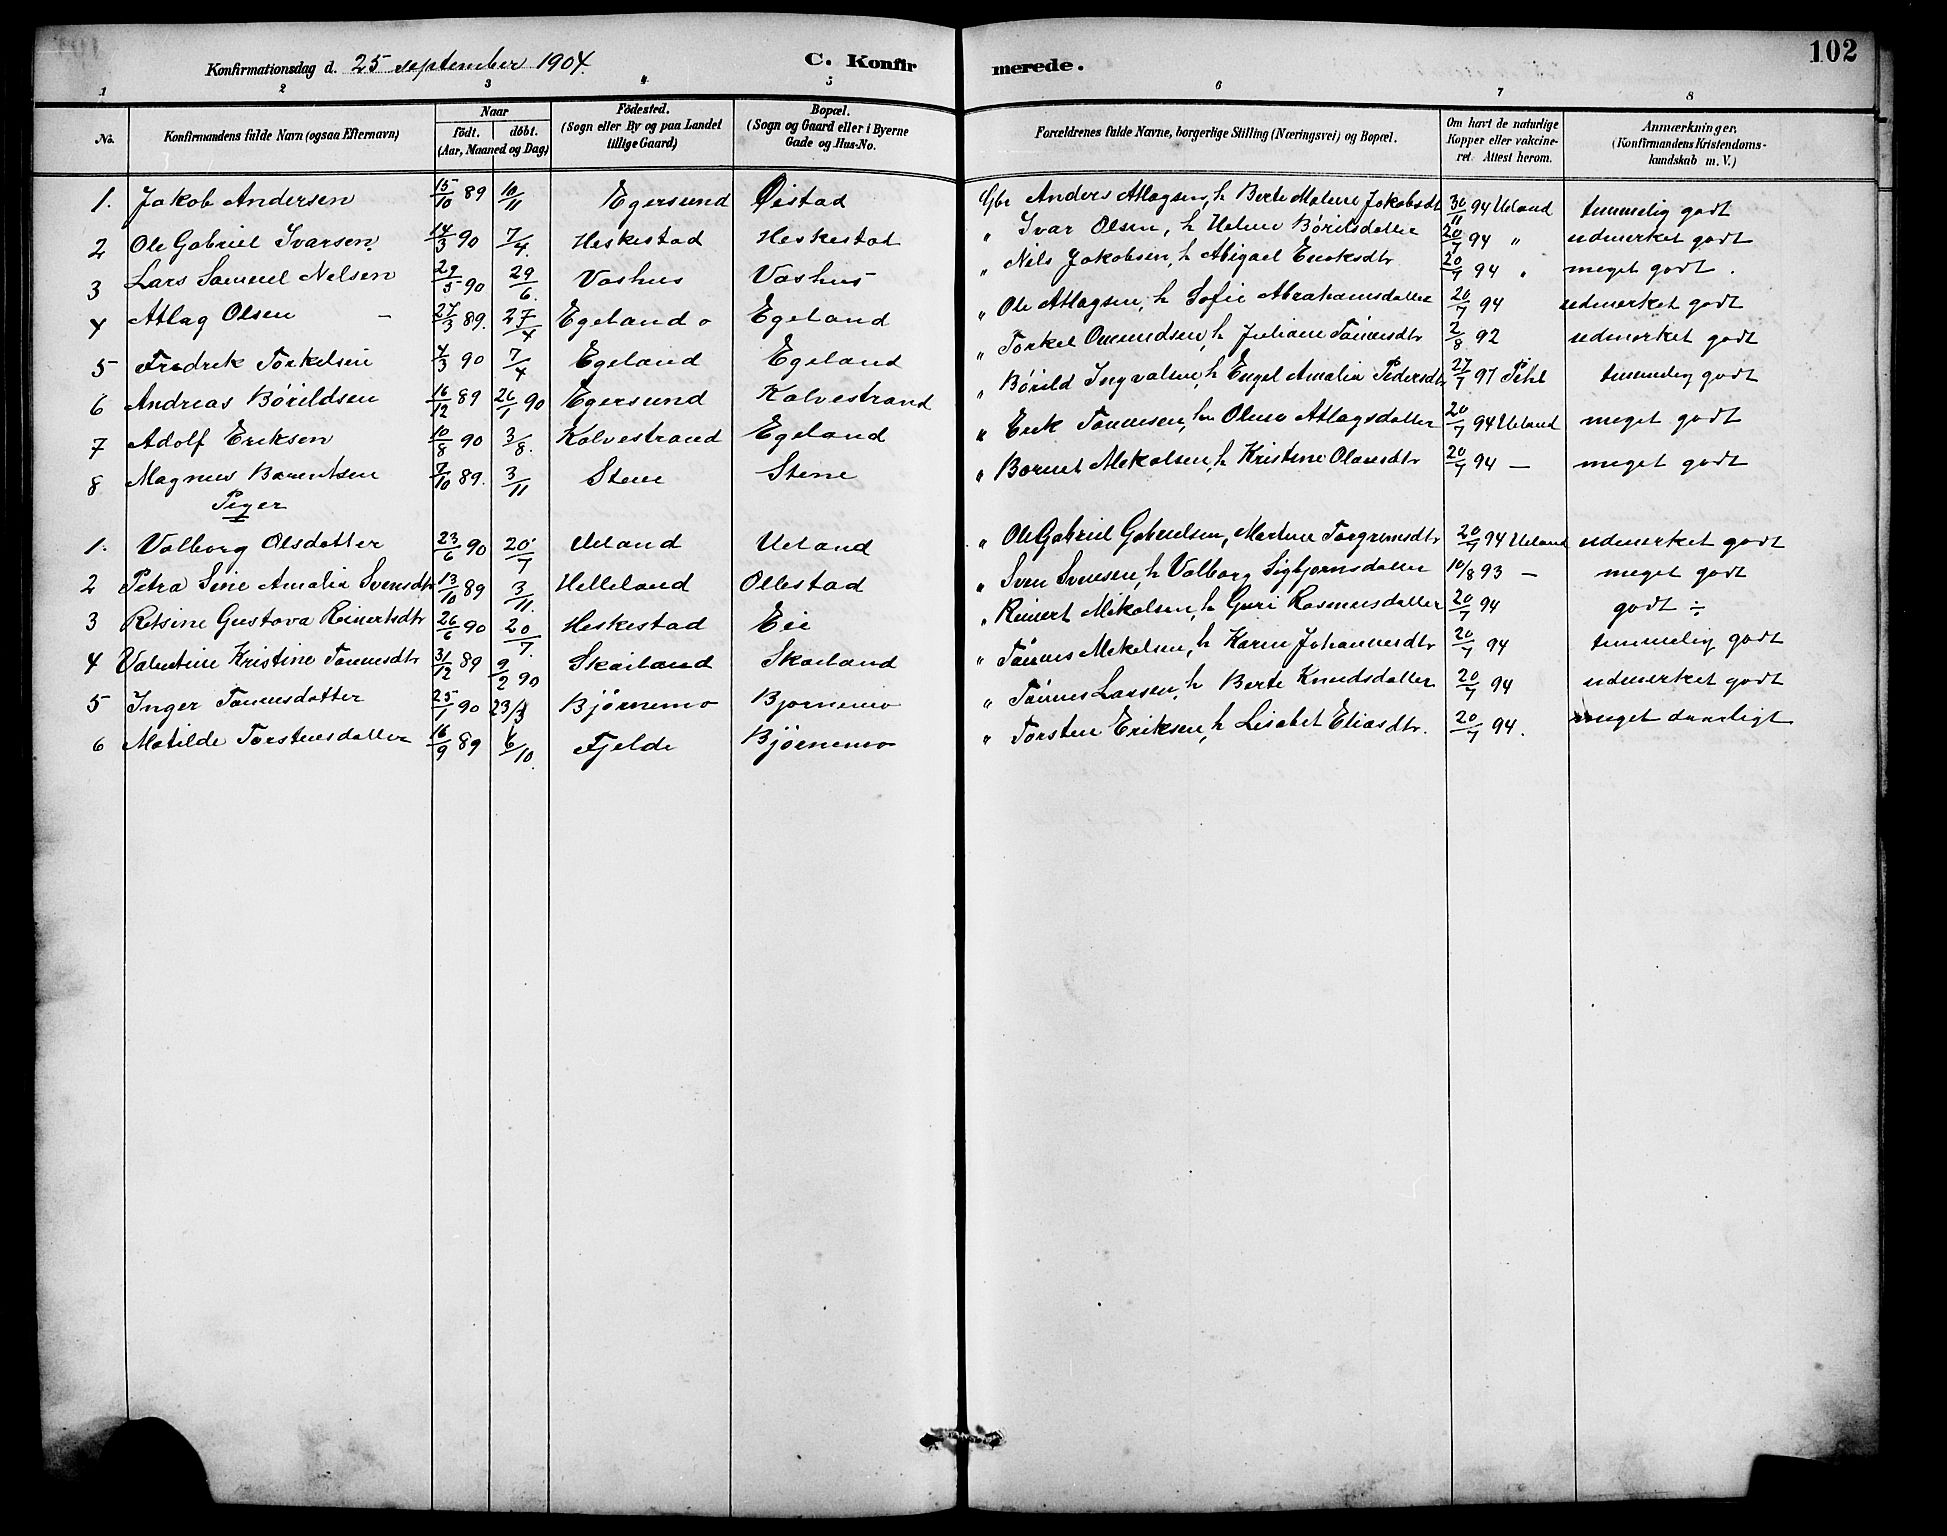 102
Konfirmationsdag d. 25 september 1904. C. Konfirmerede.
1 2 3 4 5 6 7 8
No. Konfirmandens fulde Navn (ogsaa Efternavn) Naar født. døbt. (Aar, Maaned og Dag) Fødested. (Sogn eller By og paa Landet tillige Gaard) Bopæl. (Sogn og Gaard eller i Byerne Gade og Hus-No. Forældrenes fulde Navne, borgerlige Stilling (Næringsvei) og Bopæl. Om havt de naturlige Kopper eller vakcineret. Attest herom. Anmærkninger. (Konfirmandens Kristendomskundskab m. V.)
1. Jakob Andersen 15/10 89 10/11 Egersund Øistad Gbr Anders Atlagsen, h Berte Malene Jakobsdt 30/11 94 Ueland temmelig godt
2 Ole Gabriel Ivarsen. 14/3 90 7/4. Heskestad Heskestad " Ivar Olsen, h Helene Børildsdatter 20/7 94 " udmerket godt
3 Lars Samuel Nelsen 29/5 90 29/6. Vashus Vashus " Nils Jakobsen, h Abigael Enoksdtr 20/7 94 " meget godt.
4 Atlag Olsen 27/3 89. 27/4 Egeland Egeland " Ole Atlagsen, h Sofie Abrahamsdatter 20/7 94 udmerket godt
5 Fredrik Torkelsen 4/3 90 7/4 Egeland Egeland " Torkel Omundsen, h Juliane Tønnesdtr 2/8 92 udmerket godt
6 Andreas Børildsen 16/12 89 26/1 90 Egersund Kalvestrand " Børild Ingvalsen, h Engel Amalia Pedersdtr 27/7 97 Pihl temmelig godt
7 Adolf Eriksen 10/8 90 3/8. Kalvestrand Egeland " Erik Tønnesen, h Olene Atlagsdatter 20/7 94 Ueland meget godt
8 Magnus Barentsen 7/10 89. 3/11 Stene Stene " Bernt Mekalsen, h Kristine Olavsdtr 20/7 94 — meget godt
Piger
1. Valborg Olsdatter 23/6 90 20/7 Ueland Ueland " Ole Gabriel Gabrielsen, Martine Torgrimsdtr 20/7 94 Ueland udmerket godt
2 Petra Sine Amalia Svensdtr 13/10 89 3/11. Helleland Ollestad " Sven Svensen, h Valborg Sigbjørnsdatter 10/8 93 — meget godt
3 Retsine Gustava Reinertsdtr 26/6 90 20/7. Heskestad Eie " Reinert Mikalsen, h Guri Rasmusdatter 20/7 94 godt ÷
4 Valentine Kristine Tønnesdtr 31/12 89 9/2 90 Skarland Skarland " Tønnes Mekelsen, h Karen Johannesdtr 20/7 94 temmelig godt
5 Inger Tønnesdatter 25/1 90 23/3 Bjørnemo Bjørnemo " Tønnes Larsen, h Berte Knudsdatter 20/7 94 udmerket godt
6 Matilde Torstensdatter 16/9 89 6/10. Fjelde Bjørnemo " Torsten Eriksen, h Lisabet Eliasdtr. 20/7 94. meget daarligt